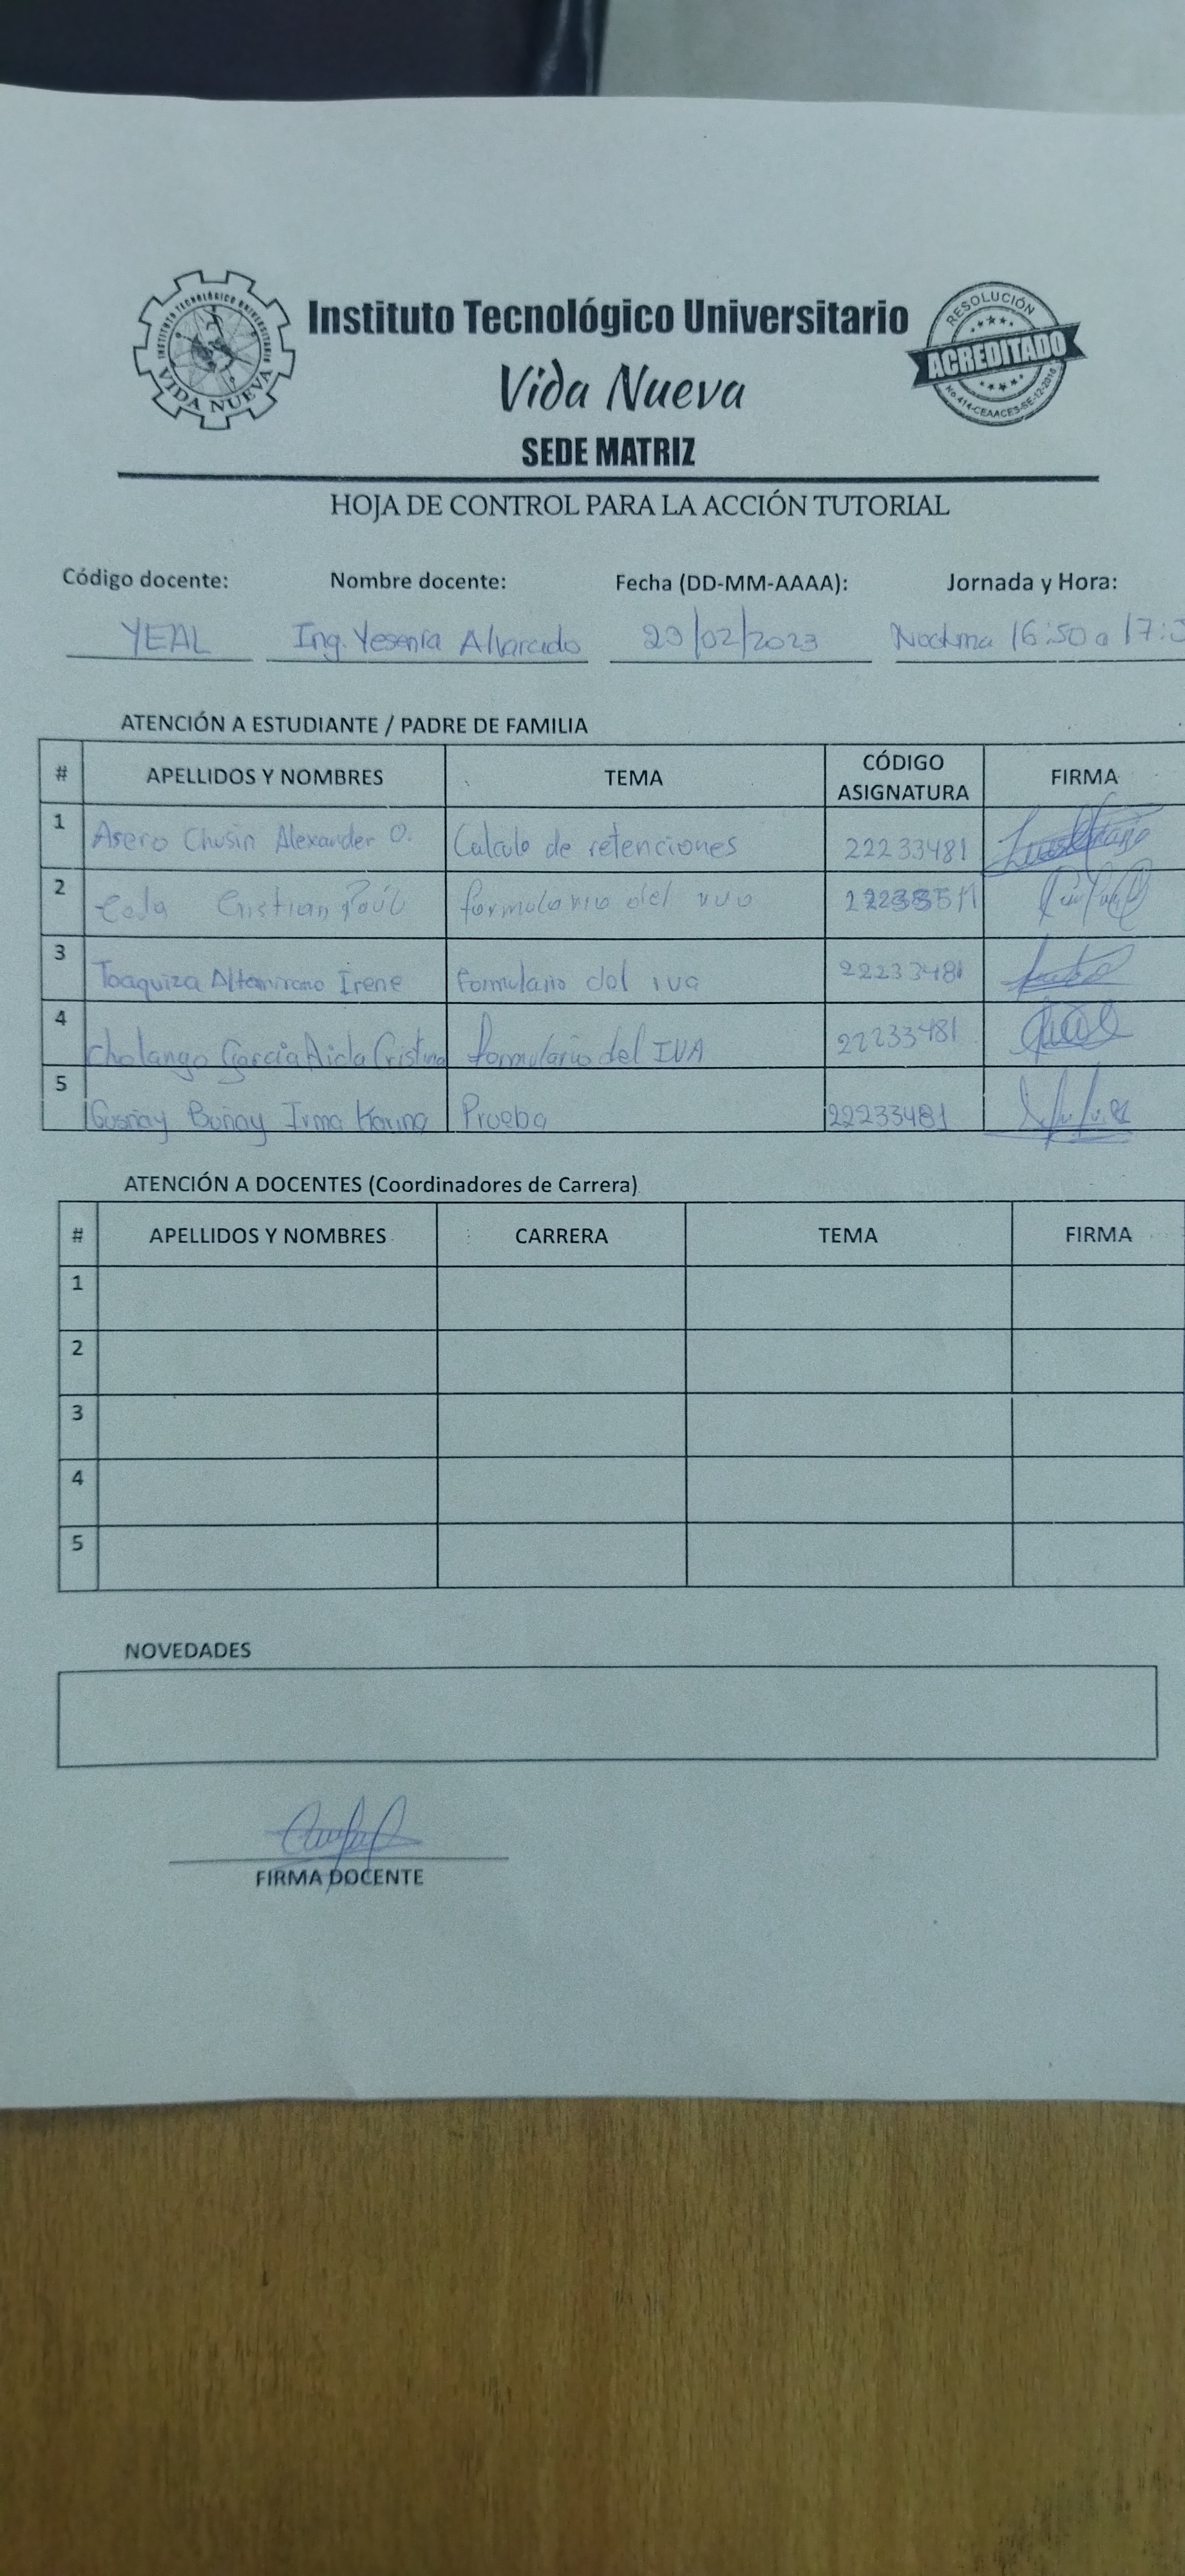 INSTITUTO TECNOLÓGICO UNIVERSITARIO
VIDA NUEVA
Instituto Tecnológico Universitario
Vida Nueva
SEDE MATRIZ
RESOLUCIÓN
ACREDITADO
No.414-CEAACES-SE-12-2016
HOJA DE CONTROL PARA LA ACCIÓN TUTORIAL
Código docente: Nombre docente: Fecha (DD-MM-AAAA): Jornada y Hora:
YEAL Ing. Yesenia Alvarado /02/2023 Nocturna 16:50 a 17:
ATENCIÓN A ESTUDIANTE / PADRE DE FAMILIA
# APELLIDOS Y NOMBRES TEMA CÓDIGO ASIGNATURA FIRMA
1 Asero Chusin Alexander O. Calculo de retenciones 22233481
2 Cristian Paúl formulario del
3 Toaquiza Altamirano Irene Formulario del iva 22233481
4 Cholango Garcia Aida Cristina formulario del IVA 22233481
5 Guañay Buñay Irma Karina Prueba 22233481
ATENCIÓN A DOCENTES (Coordinadores de Carrera)
# APELLIDOS Y NOMBRES CARRERA TEMA FIRMA
1
2
3
4
5
NOVEDADES
FIRMA DOCENTE